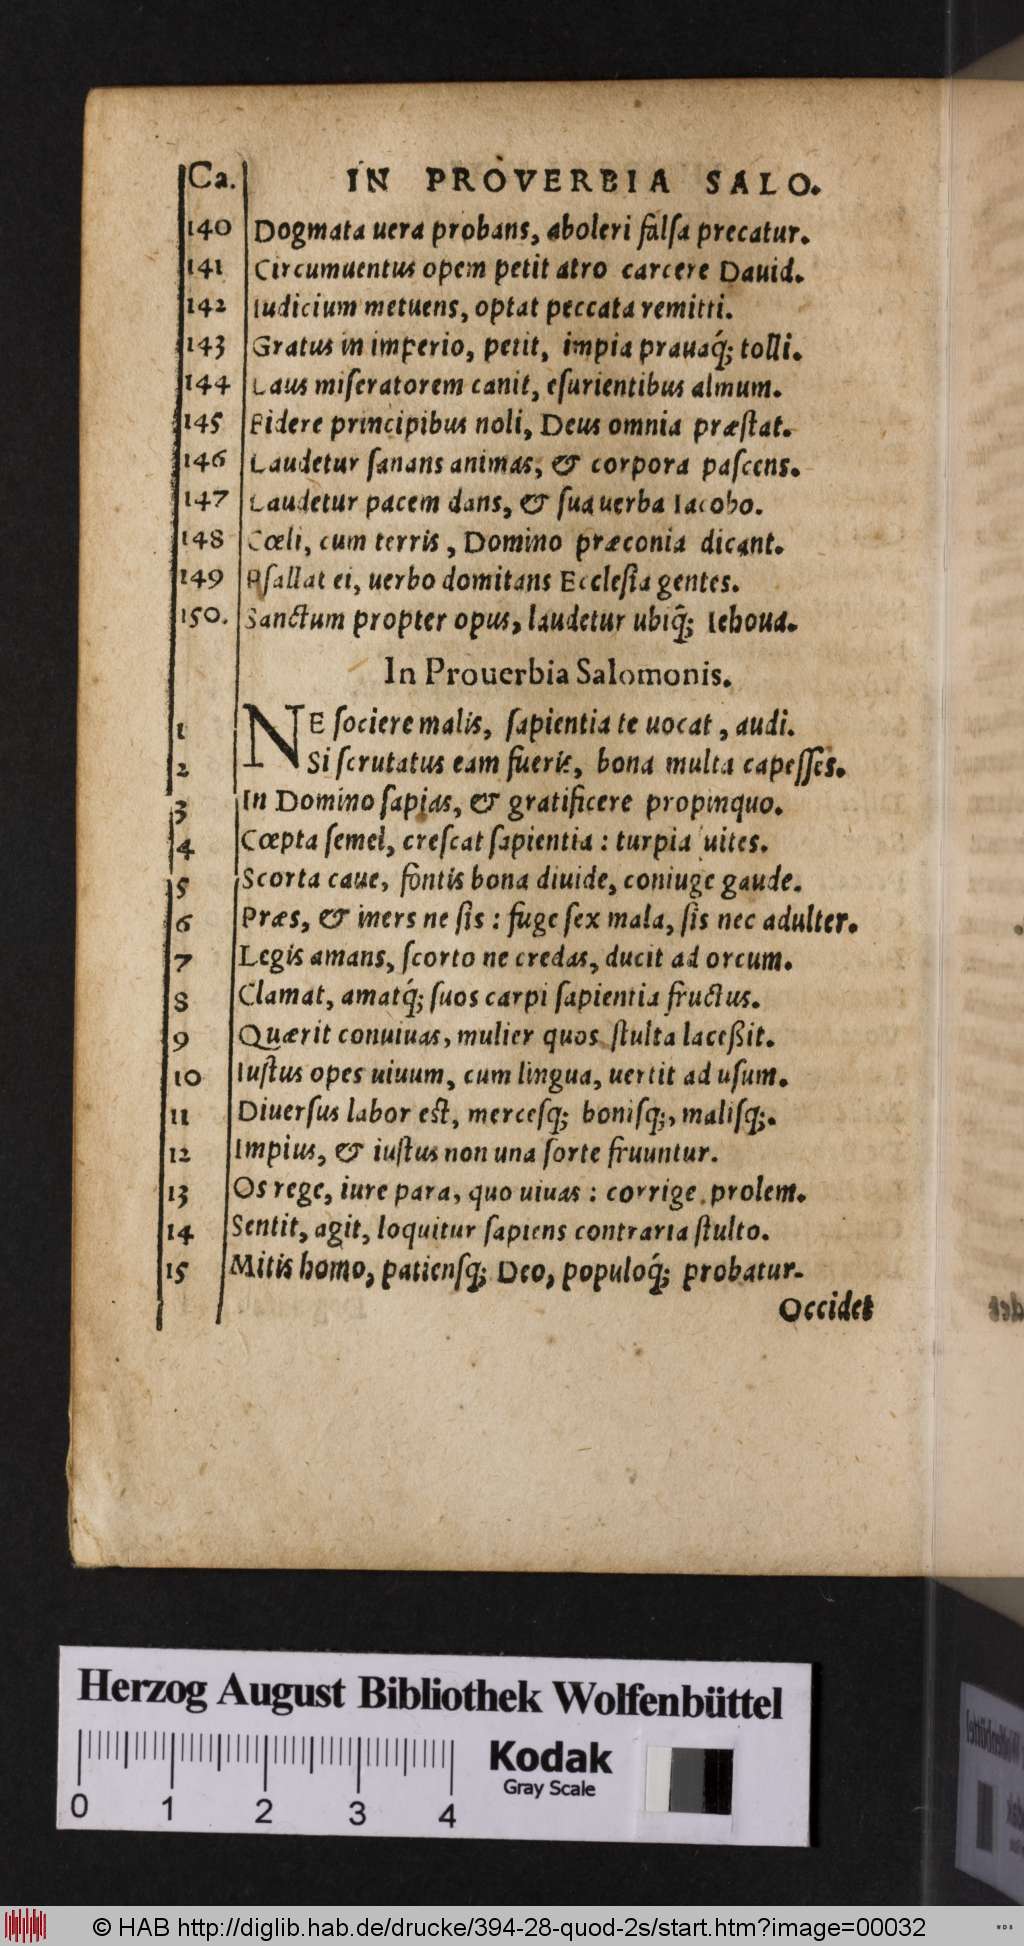 Ca. IN PROVERBIA SALO.
140 Dogmata uera probans, aboleri falſa precatur.
141 Circumuentus opem petit atro carcere Dauid.
142 Iudicium metuens, optat peccata remitti.
143 Gratus in imperio, petit, impia prauaq́; tolli.
144 Laus miſeratorem canit, eſurientibus almum.
145 Fidere principibus noli, Deus omnia præſtat.
146 Laudetur ſanans animas, & corpora paſcens.
147 Laudetur pacem dans, & ſua uerba Iacobo.
148 Cœli, cum terris, Domino præconia dicant.
149 Pſallat ei, uerbo domitans Eccleſia gentes.
150. Sanctum propter opus, laudetur ubiq̃; Iehoua.
In Prouerbia Salomonis.
1 NE ſociere malis, ſapientia te uocat, audi.
2 Si ſcrutatus eam fueris, bona multa capeſſes.
3 In Domino ſapias, & gratificere propinquo.
4 Cœpta ſemel, creſcat ſapientia: turpia uites.
5 Scorta caue, fontis bona diuide, coniuge gaude.
6 Præs, & iners ne ſis: fuge ſex mala, ſis nec adulter.
7 Legis amans, ſcorto ne credas, ducit ad orcum.
8 Clamat, amatq́; ſuos carpi ſapientia fructus.
9 Quærit conuiuas, mulier quos ſtulta laceßit.
10 Iuſtus opes uiuum, cum lingua, uertit ad uſum.
11 Diuerſus labor eſt, merceſq; boniſq;, maliſq;.
12 Impius, & iuſtus non una ſorte fruuntur.
13 Os rege, iure para, quo uiuas: corrige prolem.
14 Sentit, agit, loquitur ſapiens contraria ſtulto.
15 Mitis homo, patienſq; Deo, populoq́; probatur.
Occidet
Herzog August Bibliothek Wolfenbüttel
Kodak
Gray Scale
0 1 2 3 4
© HAB http://diglib.hab.de/drucke/394-28-quod-2s/start.htm?image=00032